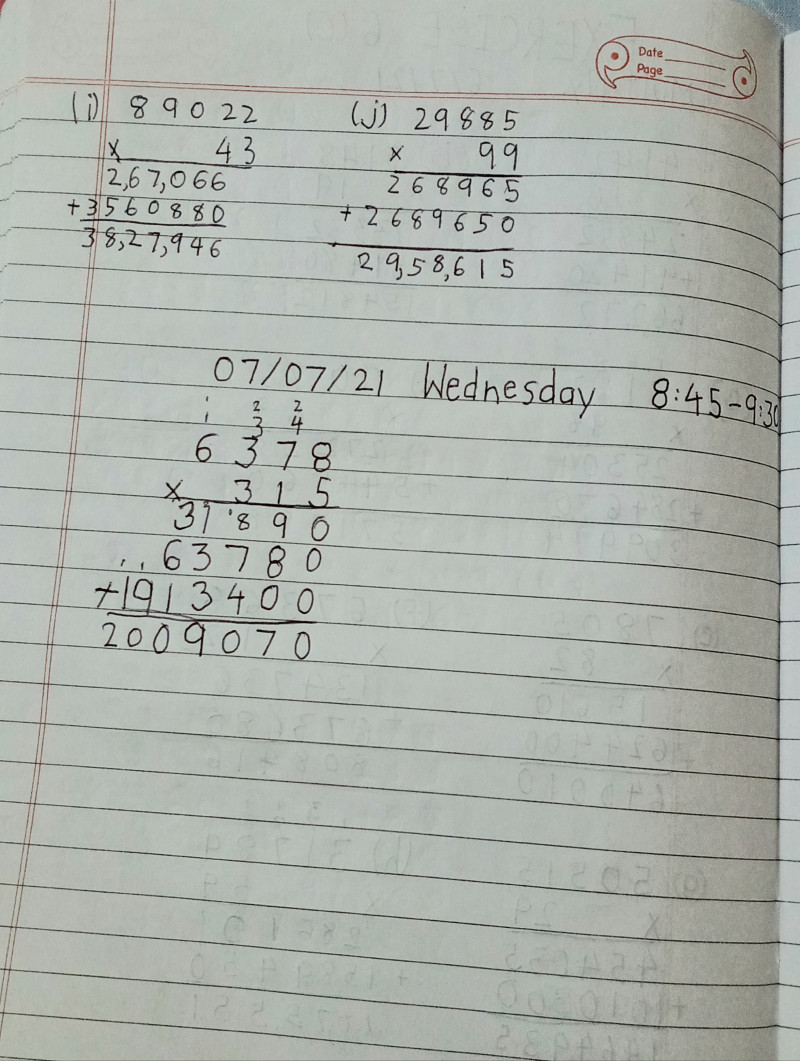 Date
Page
(i) 89022 (j) 29885
x 43 x 99
2,67,066 268965
+3560880 +2689650
38,27,946 29,58,615
07/07/21 Wednesday 8:45-9:30
1 2 2
1 3 4
6378
x 315
31890
63780
+1913400
2009070